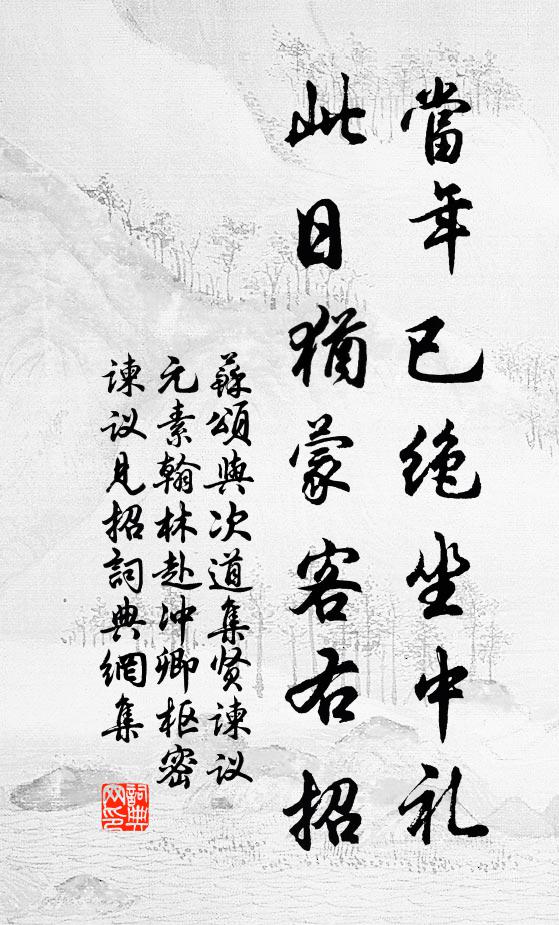 當年已絶坐中礼
此日猶蒙客右招
蘇頌與次道集贤諫议
元素翰林赴冲卿枢密
諫议見招詞典網集
詞典网印